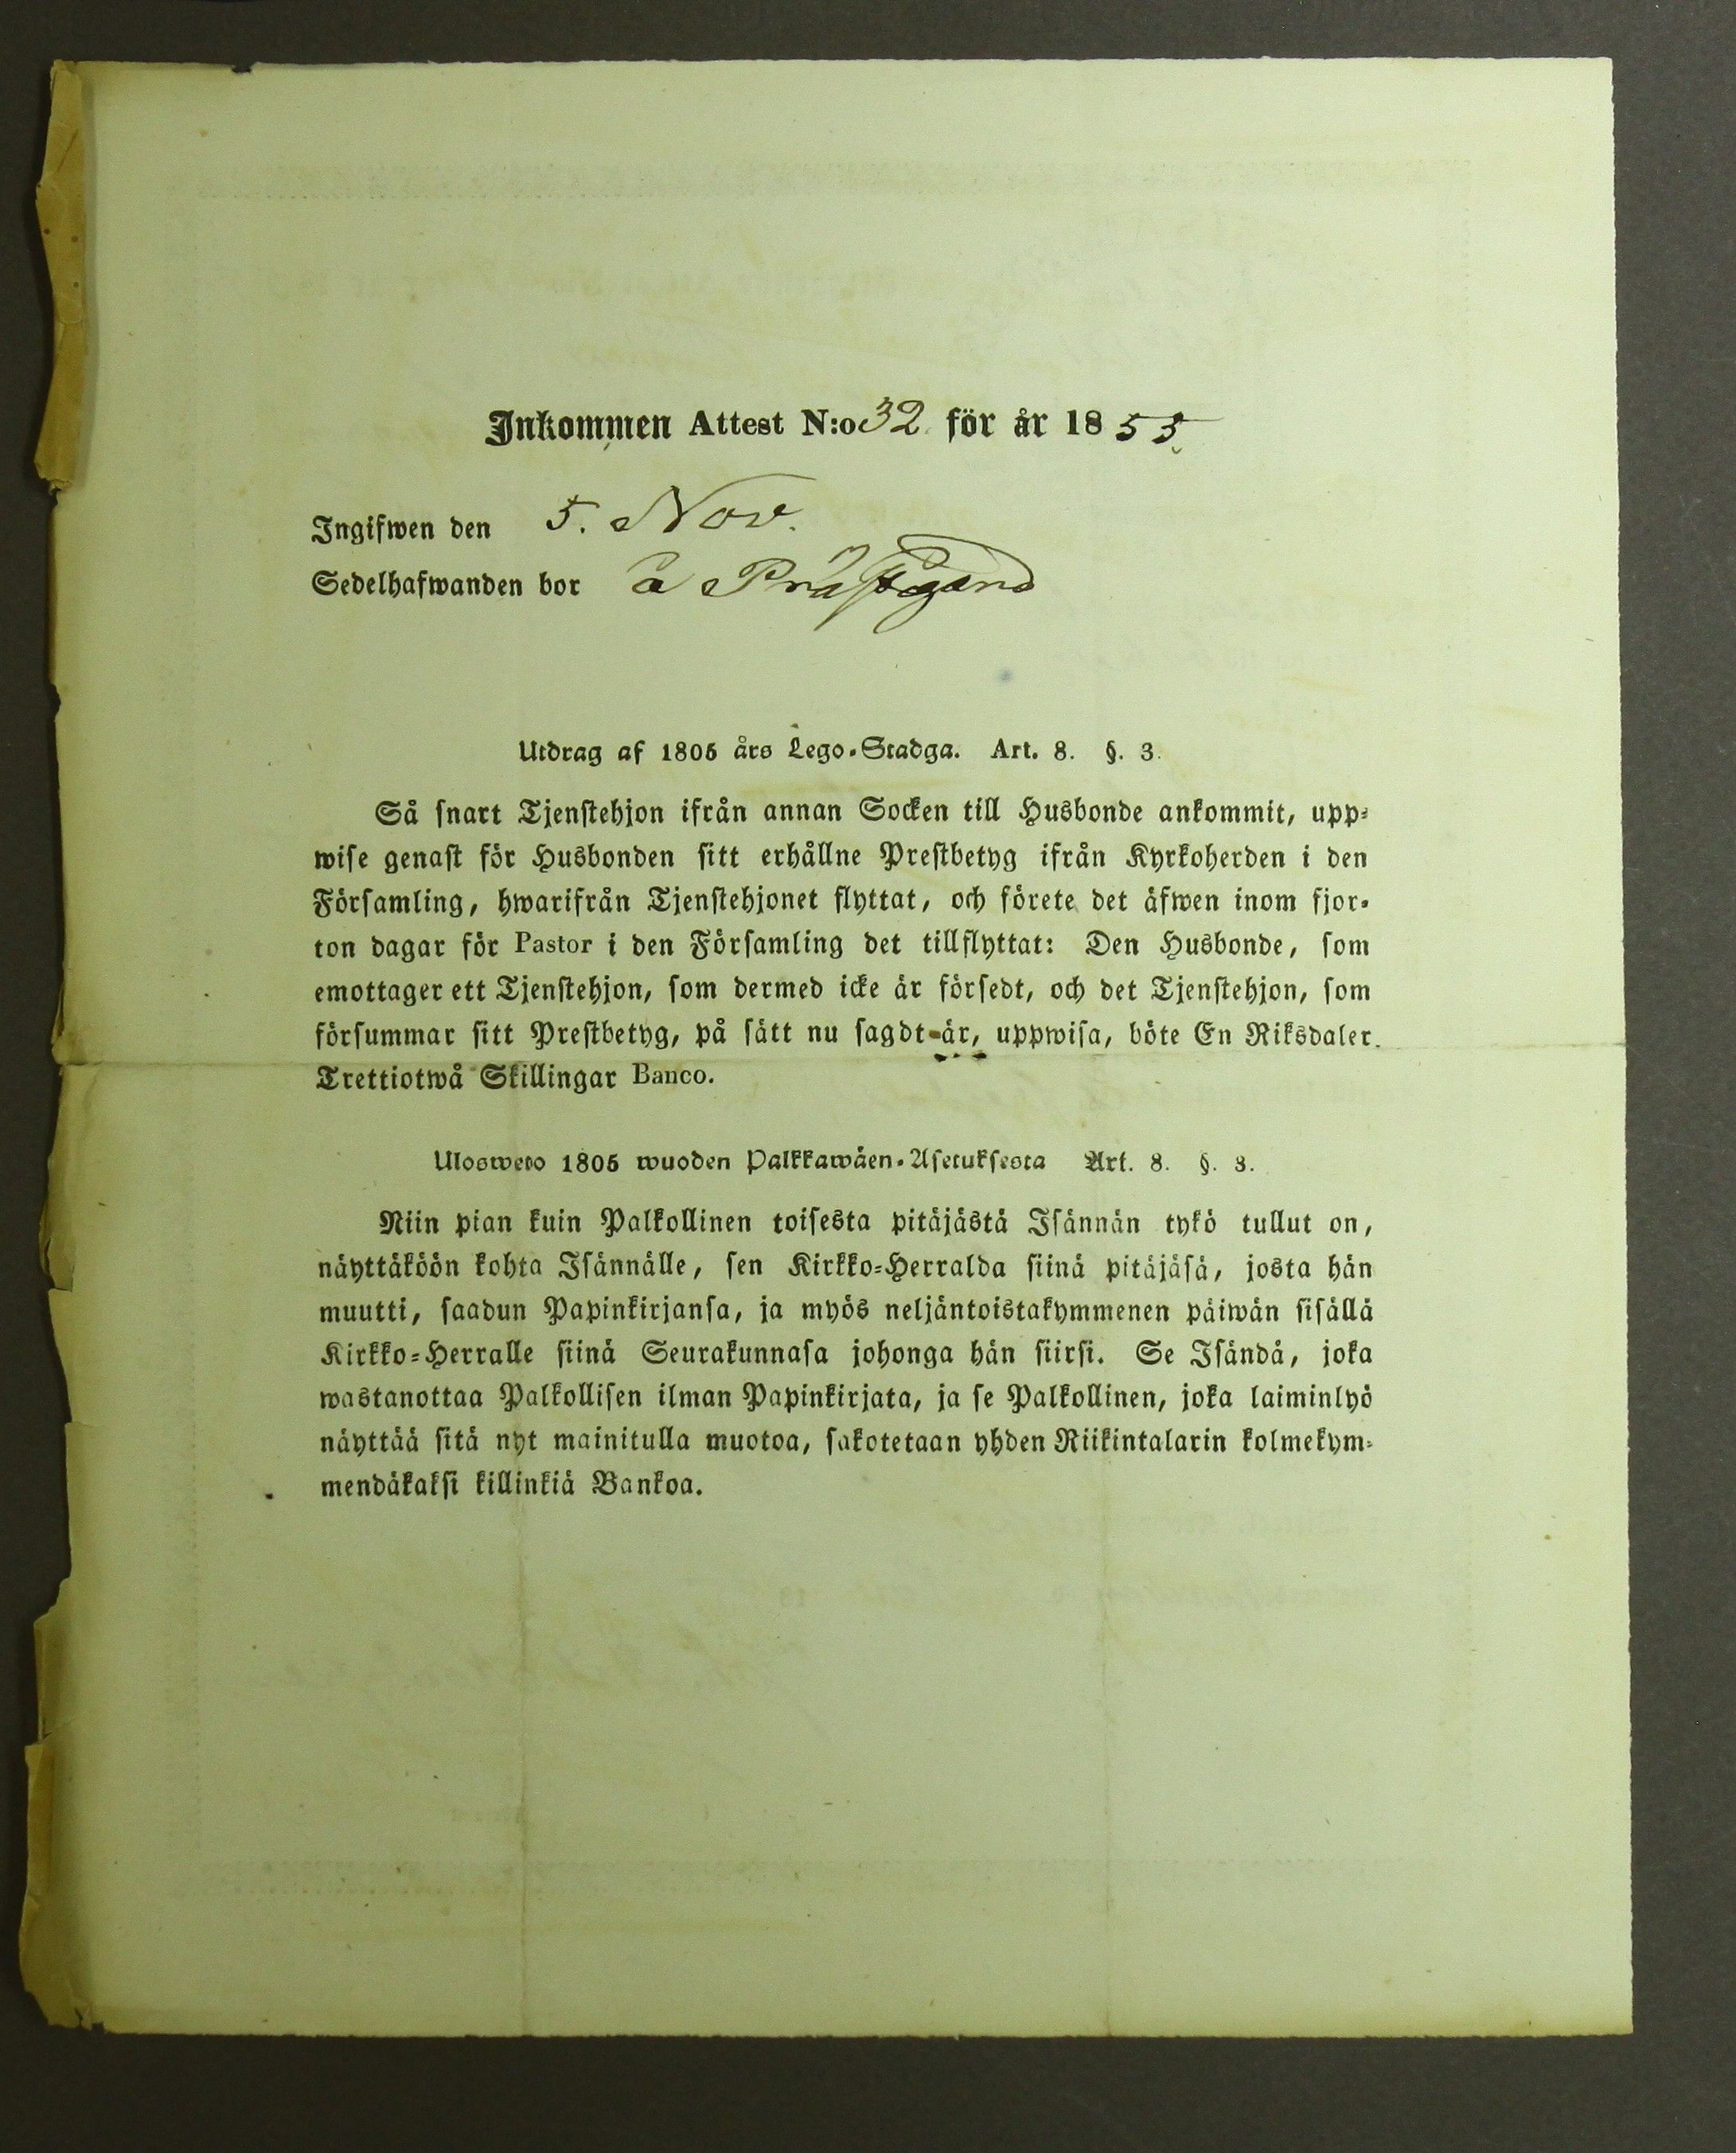 Inkommen Attest N:o 32 för år 1855.
Ingifwen den 5. Nov.
Sedelhafwanden bor å Prästgård
Utdrag af 1805 års Lego-Stadga. Art. 8. §. 3.
Så snart Tjenstehjon ifrån annan Socken till Husbonde ankommit, upp-
wise genast för Husbonden sitt erhållne Prestbetyg ifrån Kyrkoherden i den
Församling, hwarifrån Tjenstehjonet flyttat, och förete det äfwen inom fjor-
ton dagar för Pastor i den Församling det tillflyttat: Den Husbonde, som
emottager ett Tjenstehjon, som dermed icke är försedt, och det Tjenstehjon, som
försummar sitt Prestbetyg, på sätt nu sagdt är, uppwisa, böte En Riksdaler
Trettiotwå Skillingar Banco.
Ulosweto 1805 wuoden Palkkawäen-Asetuksesta Art. 8. §. 3.
Niin pian kuin Palkollinen toisesta pitäjästä Isännän tykö tullut on,
näyttäköön kohta Isännälle, sen Kirkko-Herralda siinä pitäjäsä, josta hän
muutti, saadun Papinkirjansa, ja myös neljäntoistakymmenen päiwän sisällä
Kirkko-Herralle siinä Seurakunnasa johonga hän siirsi. Se Isändä, joka
wastanottaa Palkollisen ilman Papinkirjata, ja se Palkollinen, joka laiminlyö
näyttää sitä nyt mainitulla muotoa, sakotetaan yhden Riikintalarin kolmekym-
mendäkaksi killinkiä Bankoa.